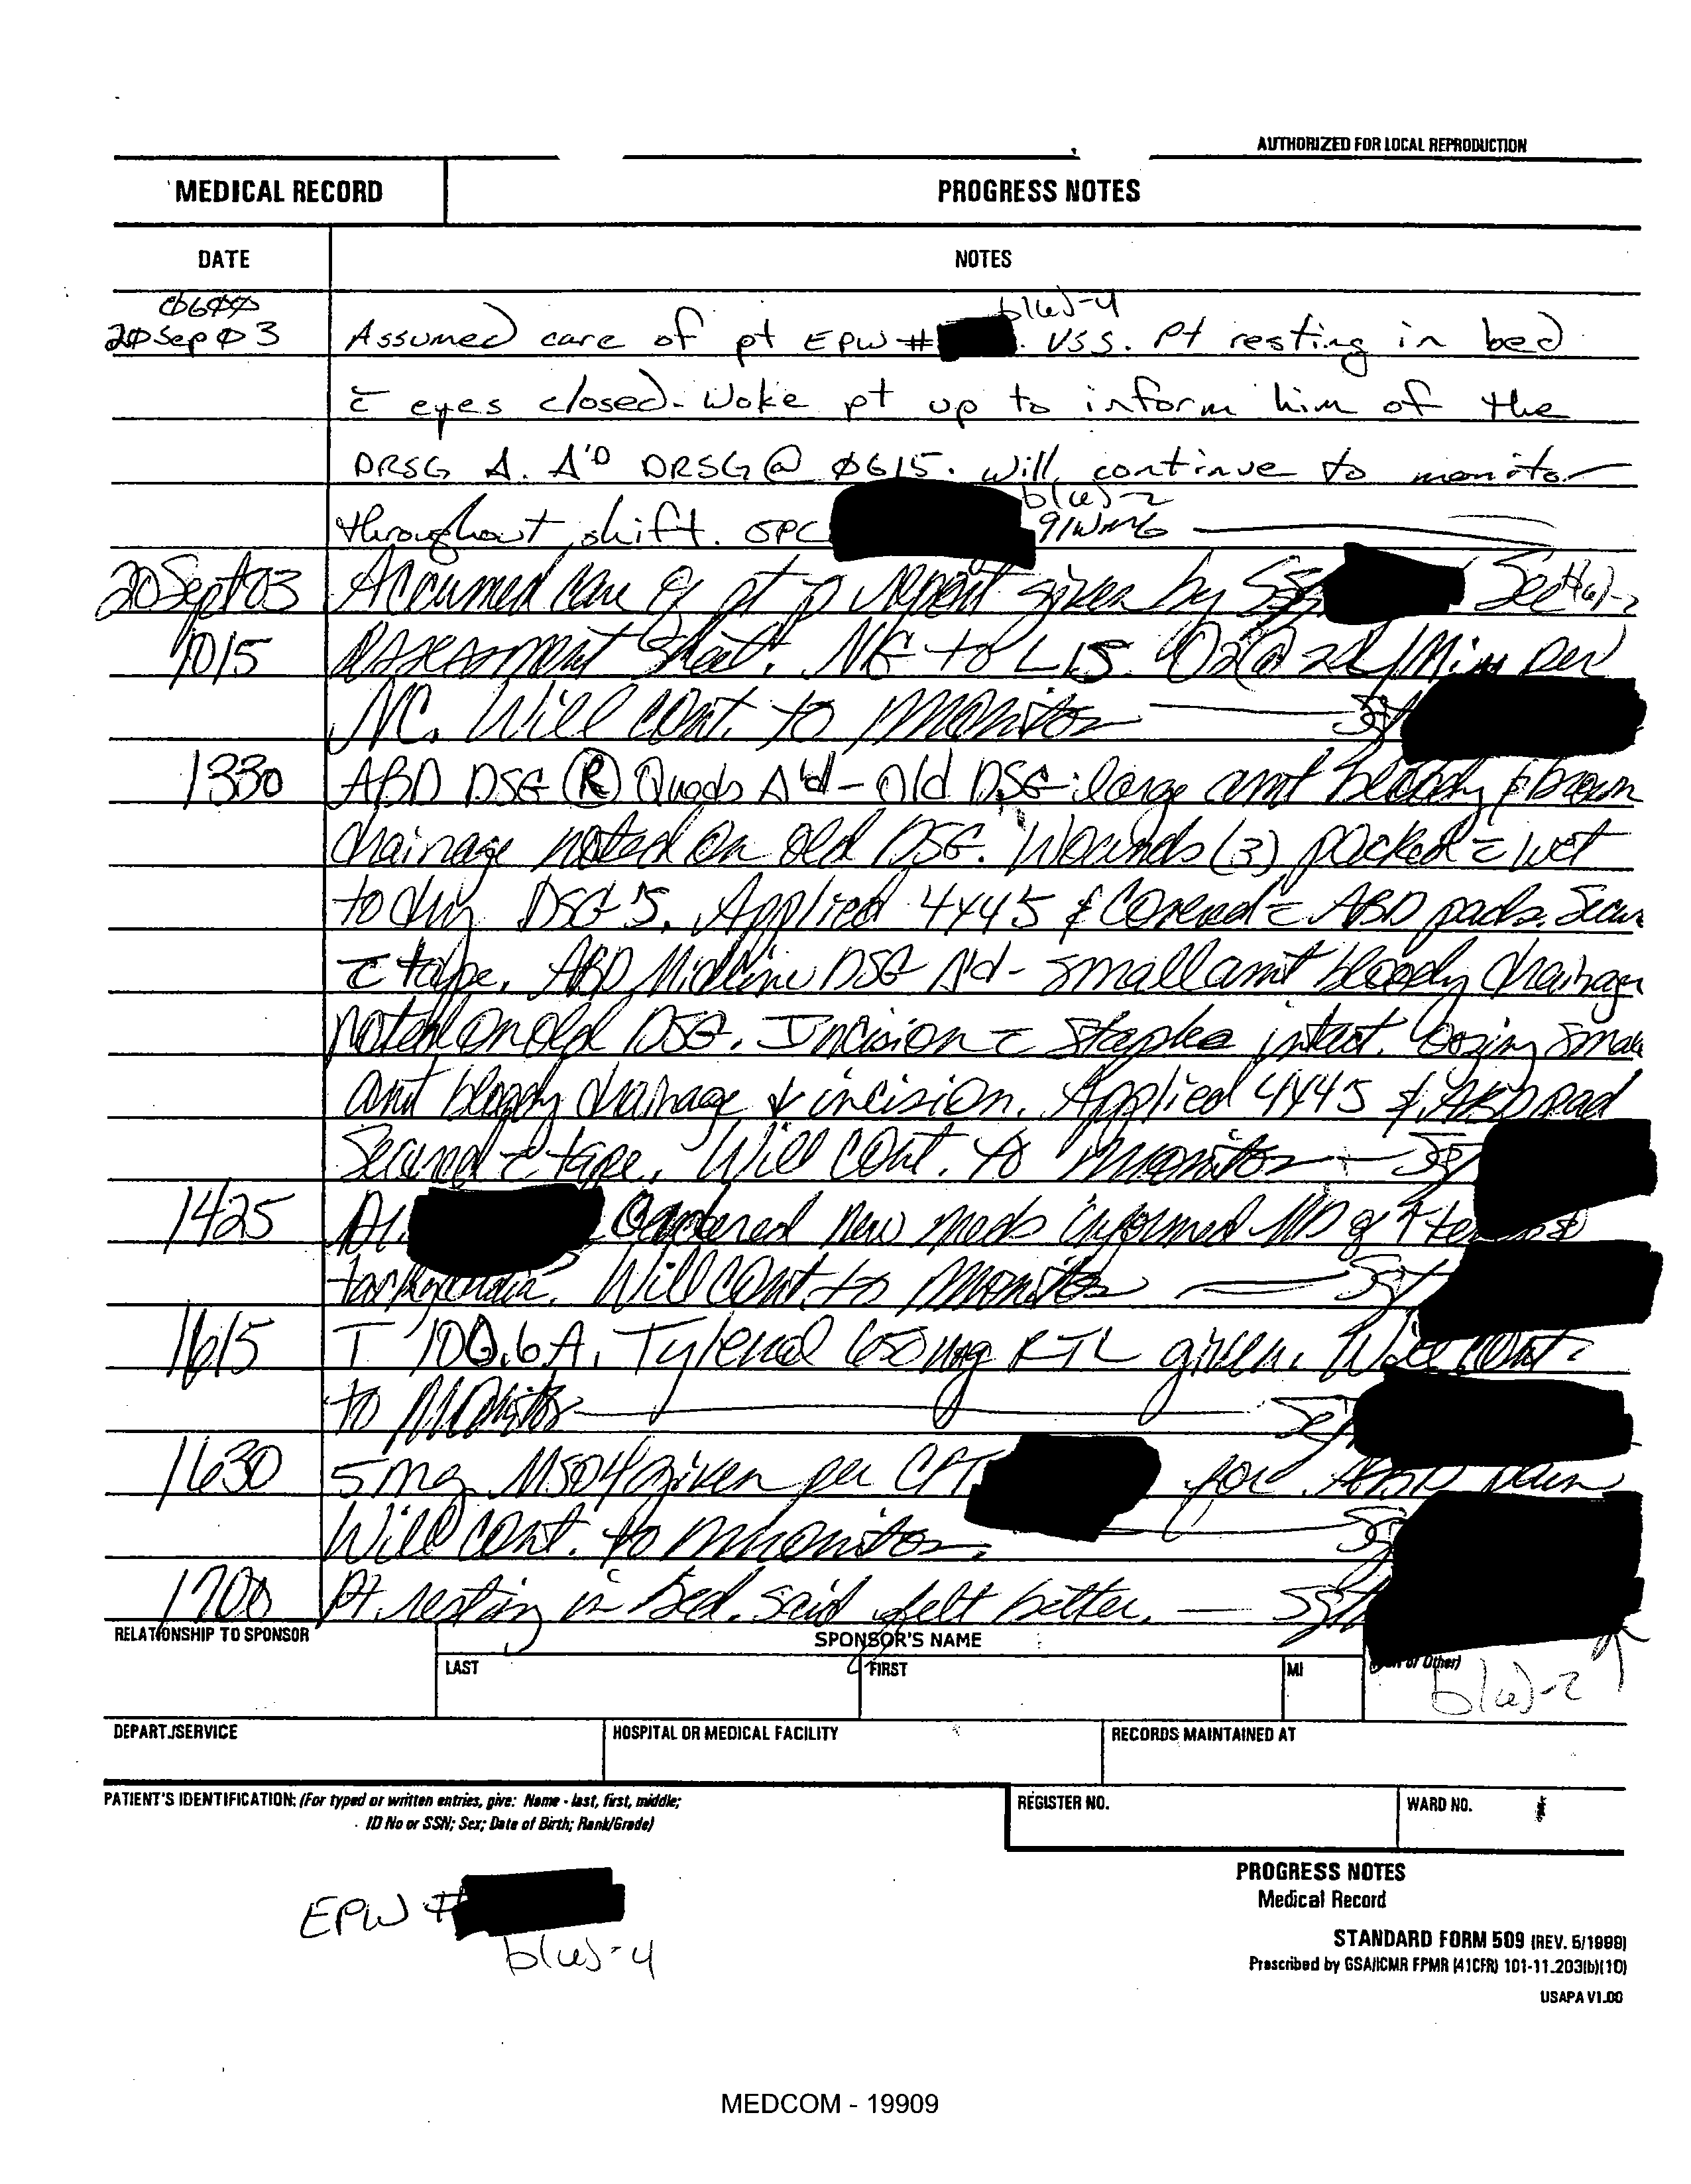 AUTHORIZED FOR LOCAL REPRODUCTION
MEDICAL RECORD
PROGRESS NOTES
DATE
NOTES
0600
b(6)-4
20 Sep 03 Assumed care of pt EPW # . VSS. Pt resting in bed
c̄ eyes closed. Woke pt up to inform him of the
DRSG Δ. Δ'D DRSG @ 0615. Will continue to monitor
b(6)-2
throughout shift. SPC 91WM6
20 Sept 03 Assumed care of pt p̄ report given by SSG See b(6)-2
1015 assessment sheet. NG to LIS. O2 @ 2L/Min per
NC. Will cont. to monitor
1330 ABD DSG Ⓡ Quads Δ'd - Old DSG: large amt bloody & brown
drainage noted on old DSG. Wounds (3) packed c̄ wet
to dry DSG's. Applied 4x4's & Covered c̄ ABD pads. Secur
c̄ tape. ABD Midline DSG Δ'd - small amt bloody drainage
noted on old DSG. Incision c̄ staples intact. Oozing small
amt bloody drainage incision. Applied 4x4's & ABD pad
Secured c̄ tape. Will cont. to monitor
1425 Dr. new meds informed MD of ↑
Will cont. to monitor
1615 T 100.6 A. Tylenol 650 mg given. Will cont.
to monitor
1630 5 mg MSO4 given per CPT for ABD pain
Will cont. to monitor.
1700 Pt resting in bed. Said felt better.
RELATIONSHIP TO SPONSOR
SPONSOR'S NAME
LAST
FIRST
MI
or Other)
b(6)-2
DEPART./SERVICE
HOSPITAL OR MEDICAL FACILITY
RECORDS MAINTAINED AT
PATIENT'S IDENTIFICATION: (For typed or written entries, give: Name - last, first, middle;
ID No or SSN; Sex; Date of Birth; Rank/Grade)
REGISTER NO.
WARD NO.
EPW #
b(6)-4
PROGRESS NOTES
Medical Record
STANDARD FORM 509 (REV. 5/1999)
Prescribed by GSA/ICMR FPMR (41CFR) 101-11.203(b)(10)
USAPA V1.00
MEDCOM - 19909